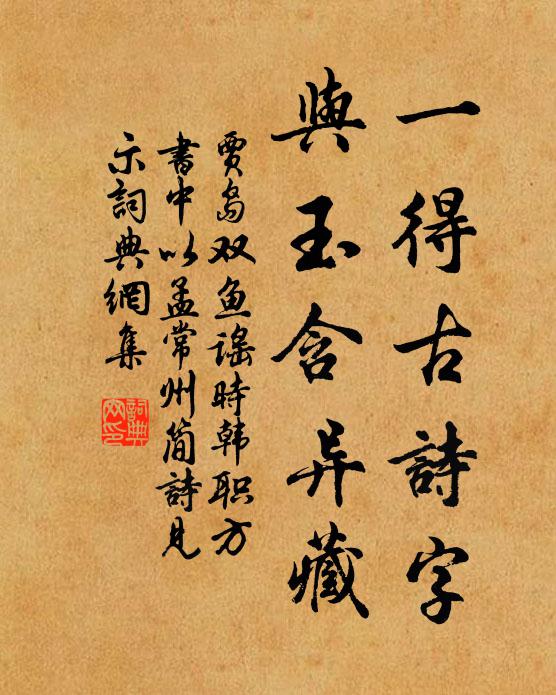 一得古詩字
與玉含异藏
賈島双魚謠時韩职方
書中以孟常州简詩見
示詞典網集
詞典
网印